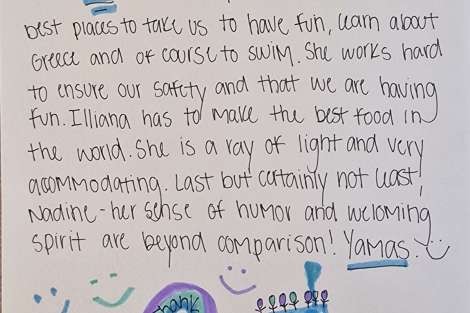 best places to take us to have fun, learn about
Greece and of course to swim. She works hard
to ensure our safety and that we are having
fun. Illiana has to make the best food in
the world. She is a ray of light and very
accommodating. Last but certainly not least,
Nadine - her sense of humor and welcoming
spirit are beyond comparison! Yamas!
Thank